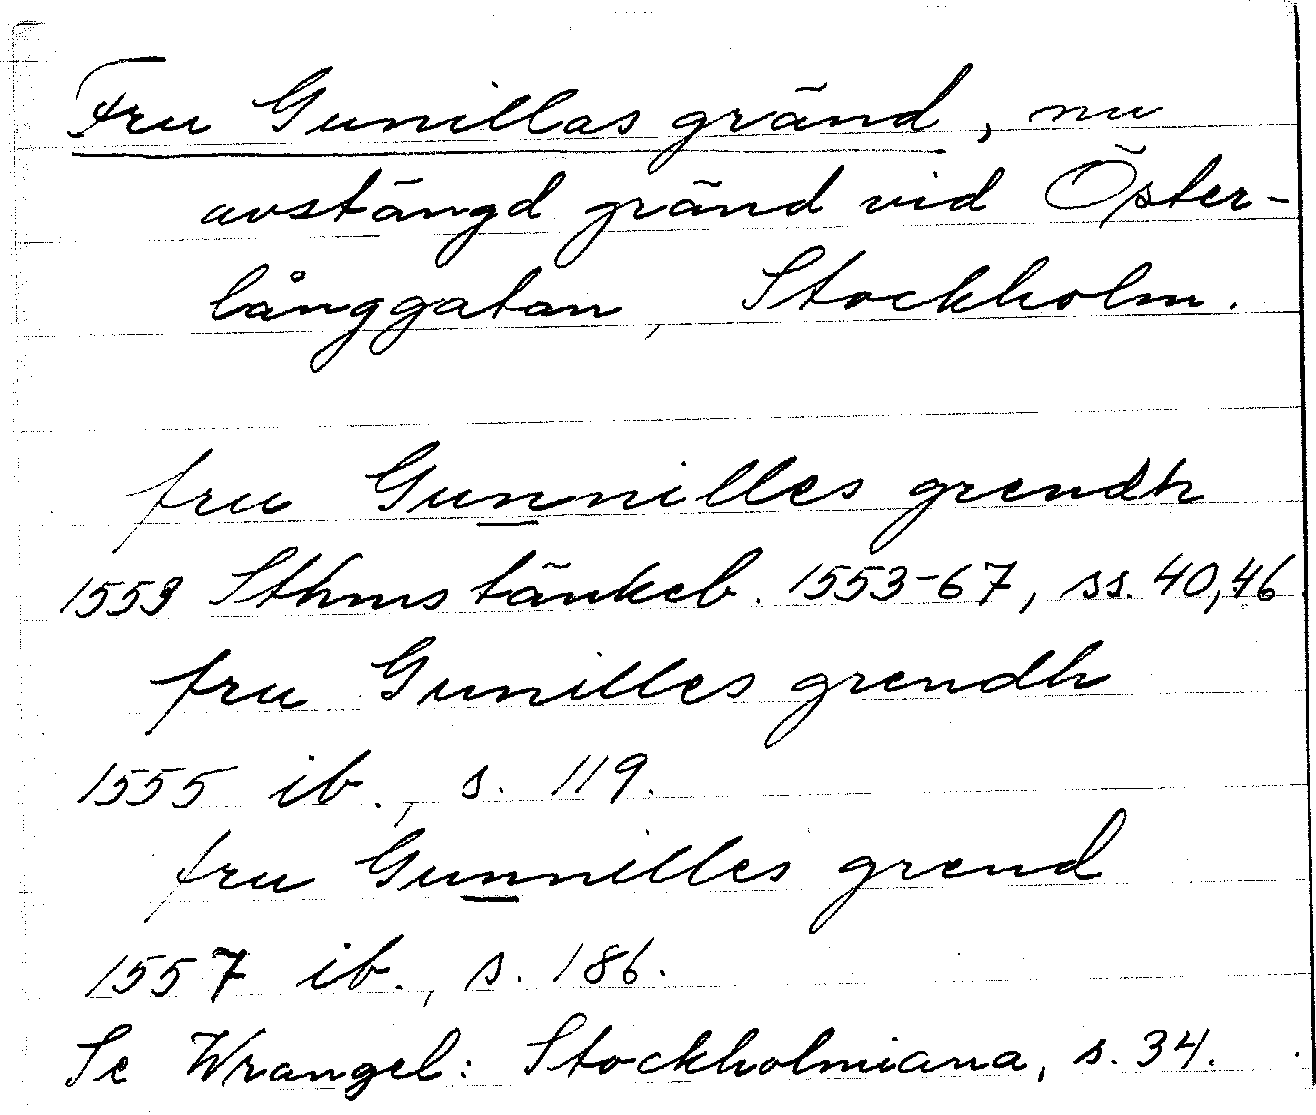 Fru Gunillas gränd, nu
avstängd gränd vid Öster-
långgatan, Stockholm.
fru Gunnilles grendh
1553 Sthms tänkeb. 1553-67, ss. 40, 46.
fru Gunilles grendh
1555 ib., s. 119.
fru Gunnilles grend
1557 ib., s. 186.
Se Wrangel: Stockholmiana, s. 34.